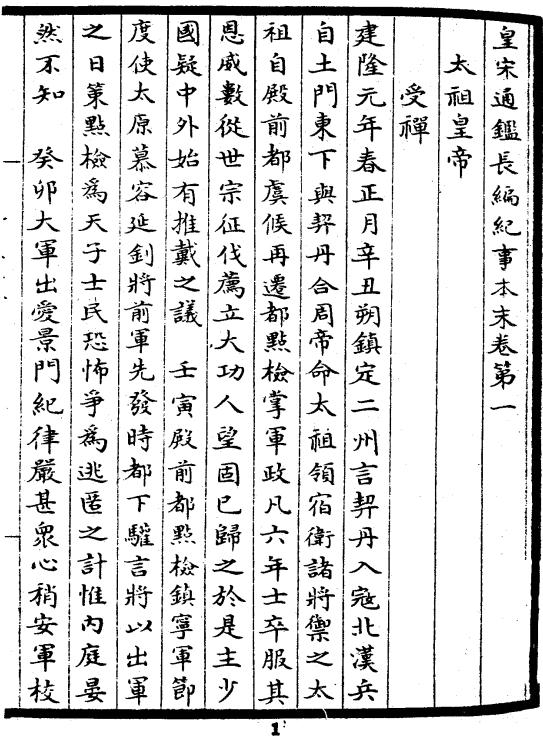 皇宋通鑑長編紀事本末卷第一
太祖皇帝
受禪
建隆元年春正月辛丑朔鎮定二州言契丹入寇北漢兵
自土門東下與契丹合周帝命太祖領宿衛諸將禦之太
祖自殿前都虞候再遷都點檢掌軍政凡六年士卒服其
恩威數從世宗征伐薦立大功人望固已歸之於是主少
國疑中外始有推戴之議 壬寅殿前都點檢鎮寧軍節
度使太原慕容延釗將前軍先發時都下讙言將以出軍
之日策點檢為天子士民恐怖爭為逃匿之計惟內庭晏
然不知 癸卯大軍出愛景門紀律嚴甚眾心稍安軍校
1